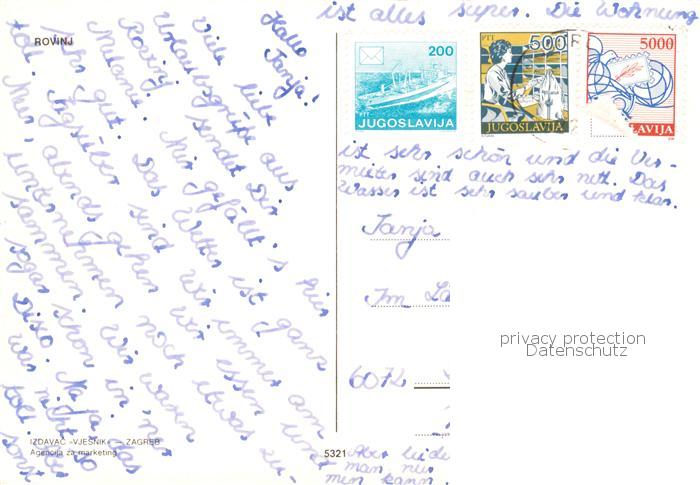 ROVINJ
Hallo
Tanja!
Viele liebe
Urlaubsgrüße aus
Rovinj sendet Dir
Melanie. Mir gefällt's hier
sehr gut. Das Wetter ist ganz
toll. Tagsüber sind wir immer am
Nur abends gehen wir essen und
unternehmen noch etwas zu-
sammen. Wir waren
sogar schon in 'ner
Disko. Na ja das
war nicht so
toll. Aber
sonst
ist alles super. Die Wohnung
ist sehr schön und die Ver-
mieter sind auch sehr nett. Das
Wasser ist sehr sauber und klar.
Aber leide
man nur
men kann.
PTT
200
JUGOSLAVIJA
PTT
500
JUGOSLAVIJA
5000
LAVIJA
Tanja
Im La
6072
privacy protection
Datenschutz
IZDAVAČ »VJESNIK« — ZAGREB
Agencija za marketing
5321